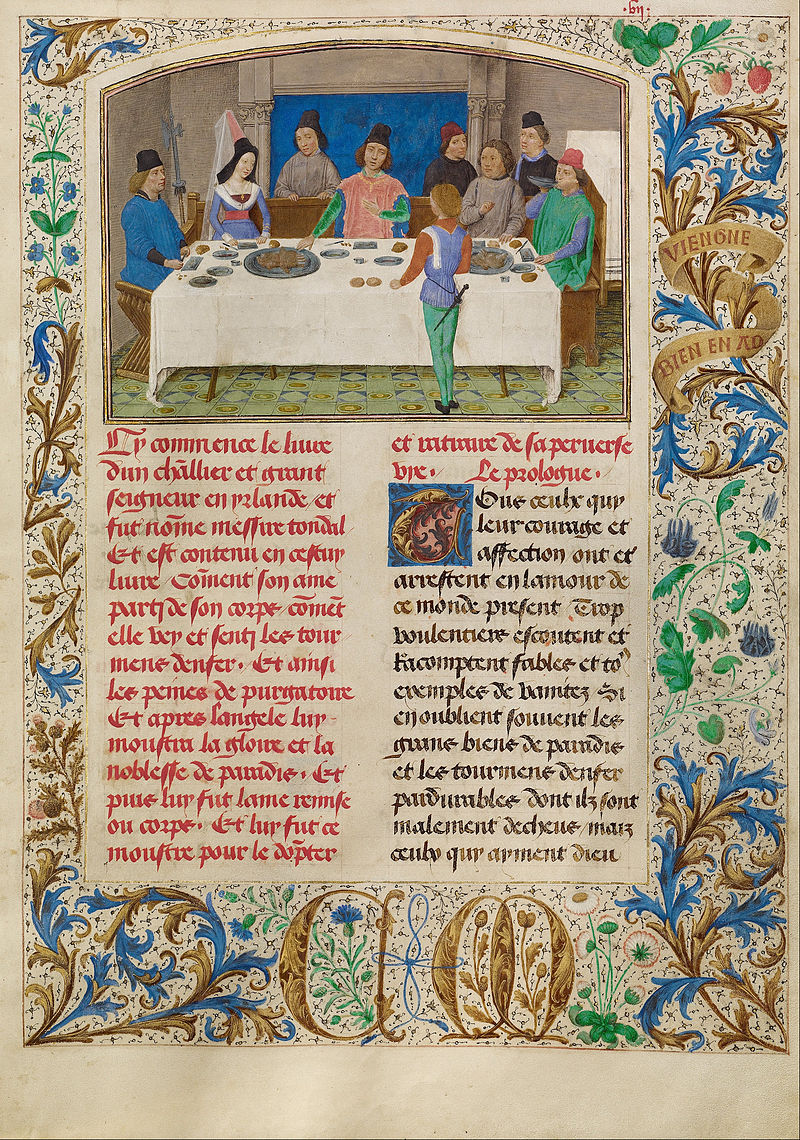 .bij.
VIENGNE
BIEN EN AD
Cy commence le liure
dun chãllier et grant
seigneur en yrlande et
fut nõme messire tondal
Et est contenu en cestuy
liure Cõment son ame
party de son corps cõmẽt
elle vey et senty les tour
mens denfer. Et ainsi
les peines de purgatoire
Et apres langele luy
monstra la gloire et la
noblesse de paradis. Et
puis luy fut lame remise
ou corps. Et luy fut ce
monstre pour le dõpter
et retraire de sa peruerse
vye. Le prologue.
Tous ceulx quy
leur courage et
affection ont et
arrestent en lamour de
ce monde present Trop
voulentiers escoutent et
Racomptent fables et
exemples de vanitez Si
en oublient souuent les
grans biens de paradis
et les tourmens denfer
pardurables dont ilz sont
malement deceus mais
ceulx quy ayment dieu
C M